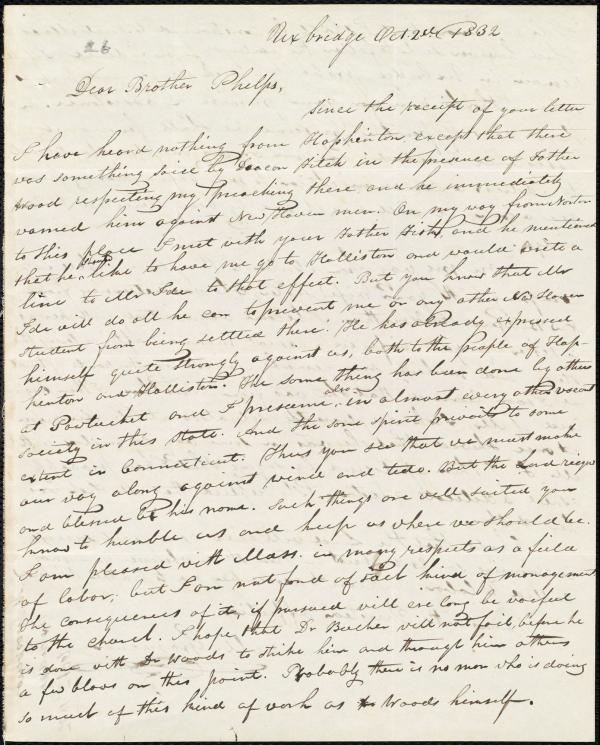 26
Uxbridge Oct. 2d. 1832
Dear Brother Phelps,
Since the receipt of your letter
I have heard nothing from Hopkinton except that there
was something said by Deacon Fitch in the presence of Father
Wood respecting my preaching there and he immediately
warned him against New Haven men. On my way from Norton
to this place I met with your Father Fisk and he mentioned
that he would like to have me go to Holliston and would write a
line to Mr Ide to that effect. But you know that Mr
Ide will do all he can to prevent me or any other New Haven
student from being settled there. He has already expressed
himself quite strongly against us, both to the people of Hop-
kinton and Holliston. The same thing has been done by others
at Pawtucket and I presume also in almost every other vacant
society in this State. And the same spirit prevails to some
extent in Connecticut. Thus you see that we must make
our way along against wind and tide. But the Lord reigns
and blessed be his name. Such things are well suited you
know to humble us and keep us where we should be.
I am pleased with Mass. in many respects as a field
of labor; but I am not fond of such kind of management
The consequences of it, if pursued will ere long be woeful
to the church. I hope that Dr Beecher will not fail, before he
is done with Dr Woods to strike him and through him others
a few blows on this point. Probably there is no man who is doing
so much of this kind of work as Dr Woods himself.